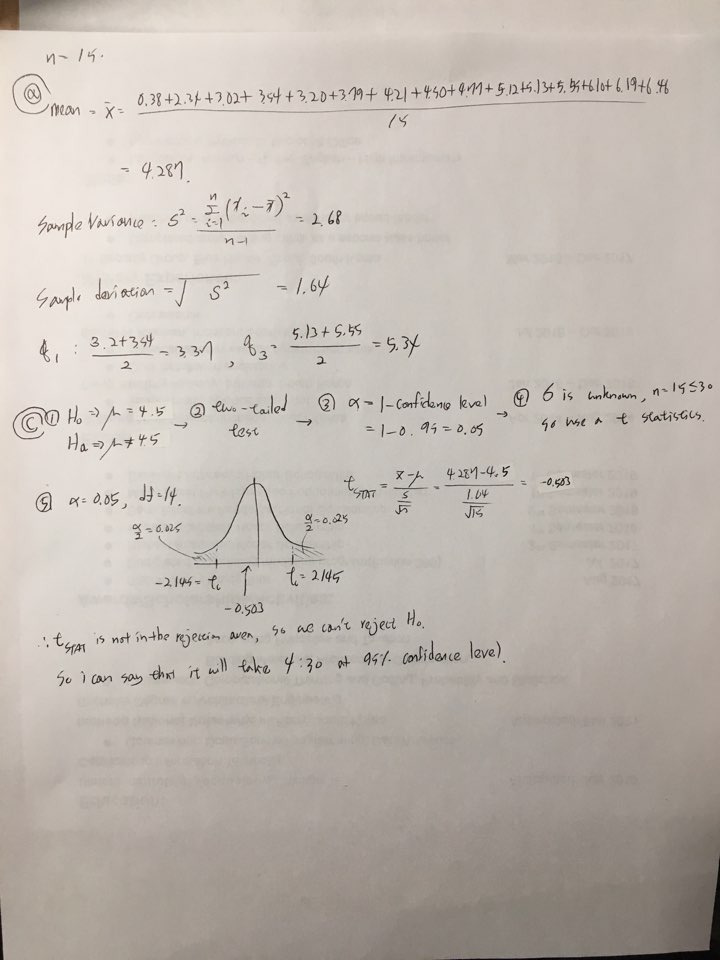 n = 15.
ⓐ mean = x̄ = (0.38+2.34+3.02+3.54+3.20+3.79+4.21+4.50+4.77+5.12+5.13+5.55+6.10+6.19+6.46) / 15
= 4.287.
Sample Variance : S² = Σ_{i=1}^{n} (x_i − x̄)² / (n−1) = 2.68
Sample deviation = √S² = 1.64
q₁ : (3.2+3.54)/2 = 3.37, q₃ = (5.13+5.55)/2 = 5.34
ⓒ ① H₀ ⇒ μ = 4.5 Ha ⇒ μ ≠ 4.5 → ② two-tailed test → ③ α = 1 − confidence level = 1 − 0.95 = 0.05 → ④ σ is unknown, n = 15 ≤ 30 so use a t statistics.
⑤ α = 0.05, df = 14.
t_STAT = (x̄ − μ) / (s/√n) = (4.287 − 4.5) / (1.64/√15) = −0.503
α/2 = 0.025
α/2 = 0.025
−2.145 = t_c
t_c = 2.145
−0.503
∴ t_STAT is not in the rejection area, so we can't reject H₀.
So i can say that it will take 4:30 at 95% confidence level.